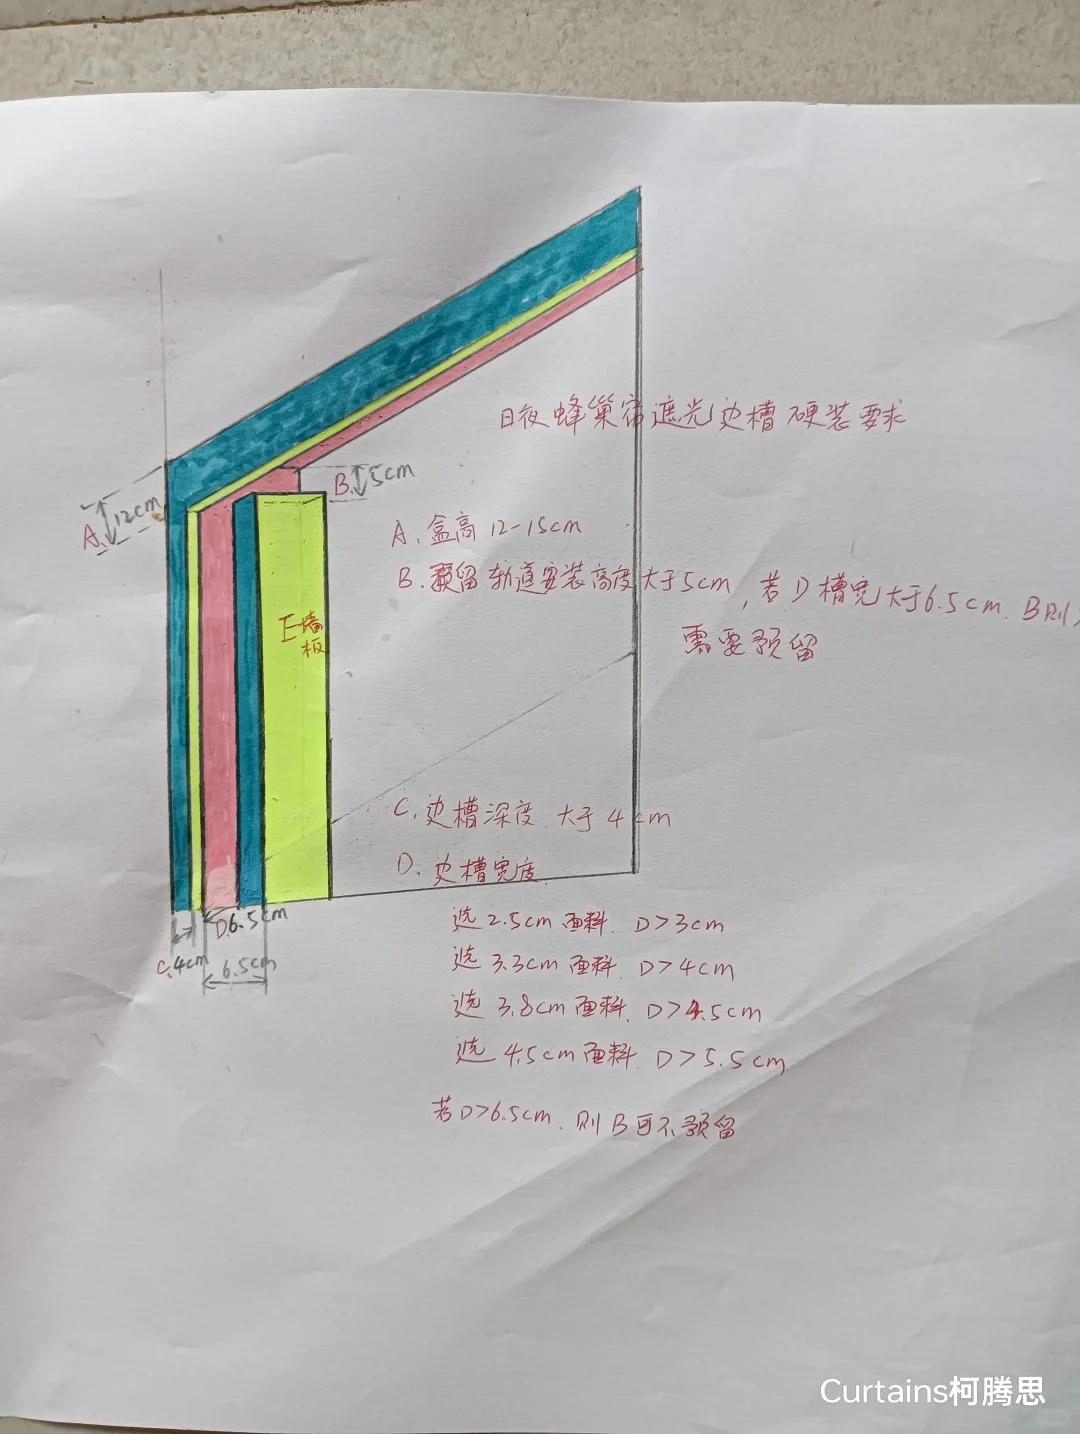 日夜蜂巢帘遮光边槽硬装要求
B. 5cm
A. 12cm
A. 盒高 12-15cm
B. 预留轨道安装高度大于5cm，若D槽宽大于6.5cm. B则
需要预留
E墙
板
C. 边槽深度 大于4cm
D. 边槽宽度
D.6.5cm
选2.5cm面料. D>3cm
C.4cm
6.5cm
选3.3cm面料. D>4cm
选3.8cm面料. D>4.5cm
选4.5cm面料. D>5.5cm
若D>6.5cm. 则B可不预留
Curtains柯腾思